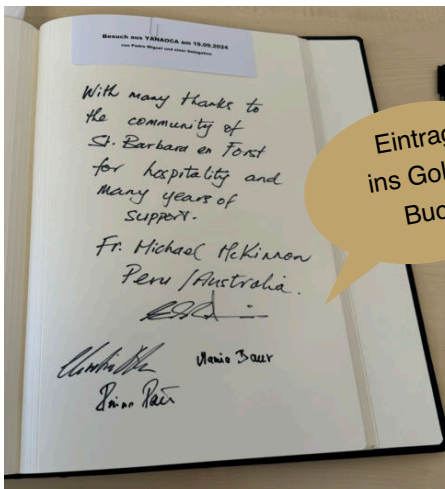 Besuch aus YANAOCA am 19.09.2024
von Padre Miguel und einer Delegation
With many thanks to
the community of
St. Barbara en Forst
for hospitality and
many years of
support.
Fr. Michael McKinnon
Peru / Australia.
Maria Baur
Eintrag
ins Gol
Buc